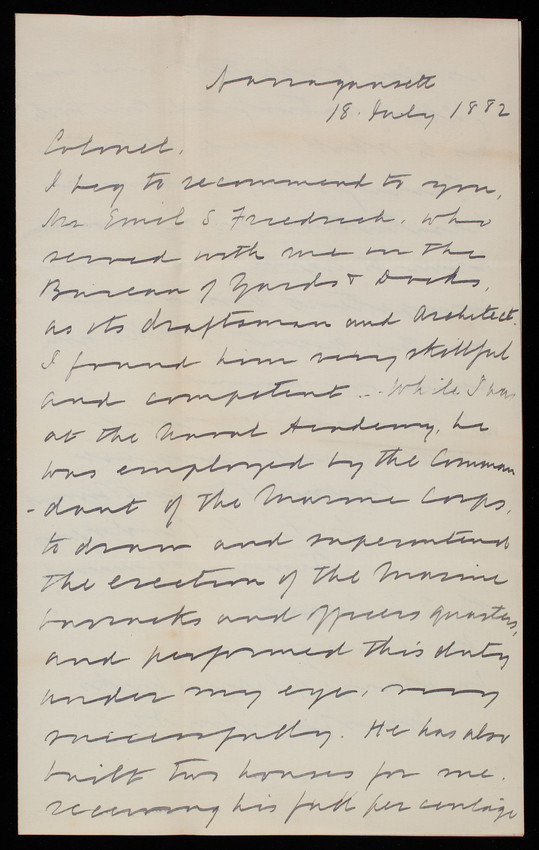 Narragansett
18. July 1882
Colonel,
I beg to recommend to you,
Mr. Emil S Friedrich, who
served with me in the
Bureau of Yards & Docks,
as its draftsman and Architect.
I found him very skillful
and competent -- While I was
at the Naval Academy, he
was employed by the Comman
-dant of the Marine Corps,
to draw and superintend
the erection of the Marine
barracks and officers quarters,
and performed this duty
under my eye, very
successfully. He has also
built two houses for me.
receiving his full percentage